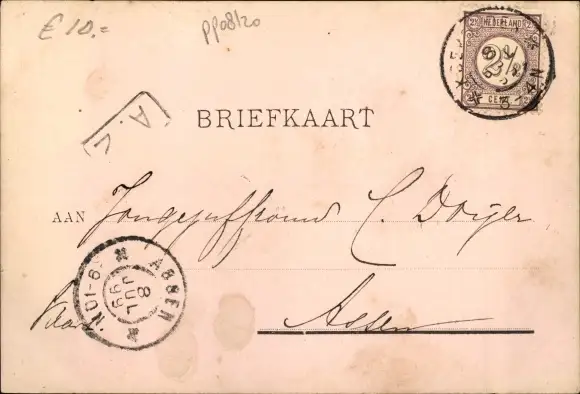 € 10.=
pp08120
NEDERLAND
2½ 2½
2½
CENT
3-4N
A.V.
BRIEFKAART
AAN Jongejuffrouw C. Dorjer
ASSEN
8 JUL 99
N 8-10
Assen